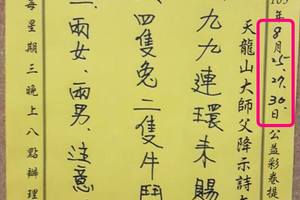 105年8月25.27.30.日公益彩卷提
天龍山大師父降示詩
九九連環未賜
四隻兔二隻牛鬥
三兩女、兩男、注意
每星期三晚上八點辦理